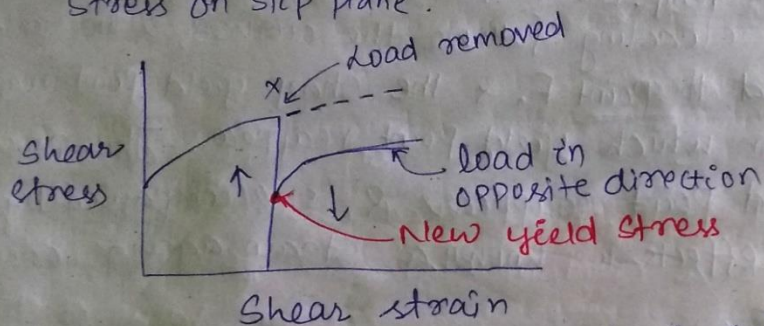 Stress on slip plane.
Load removed
x
Shear
stress
load in
opposite direction
New yield stress
Shear strain